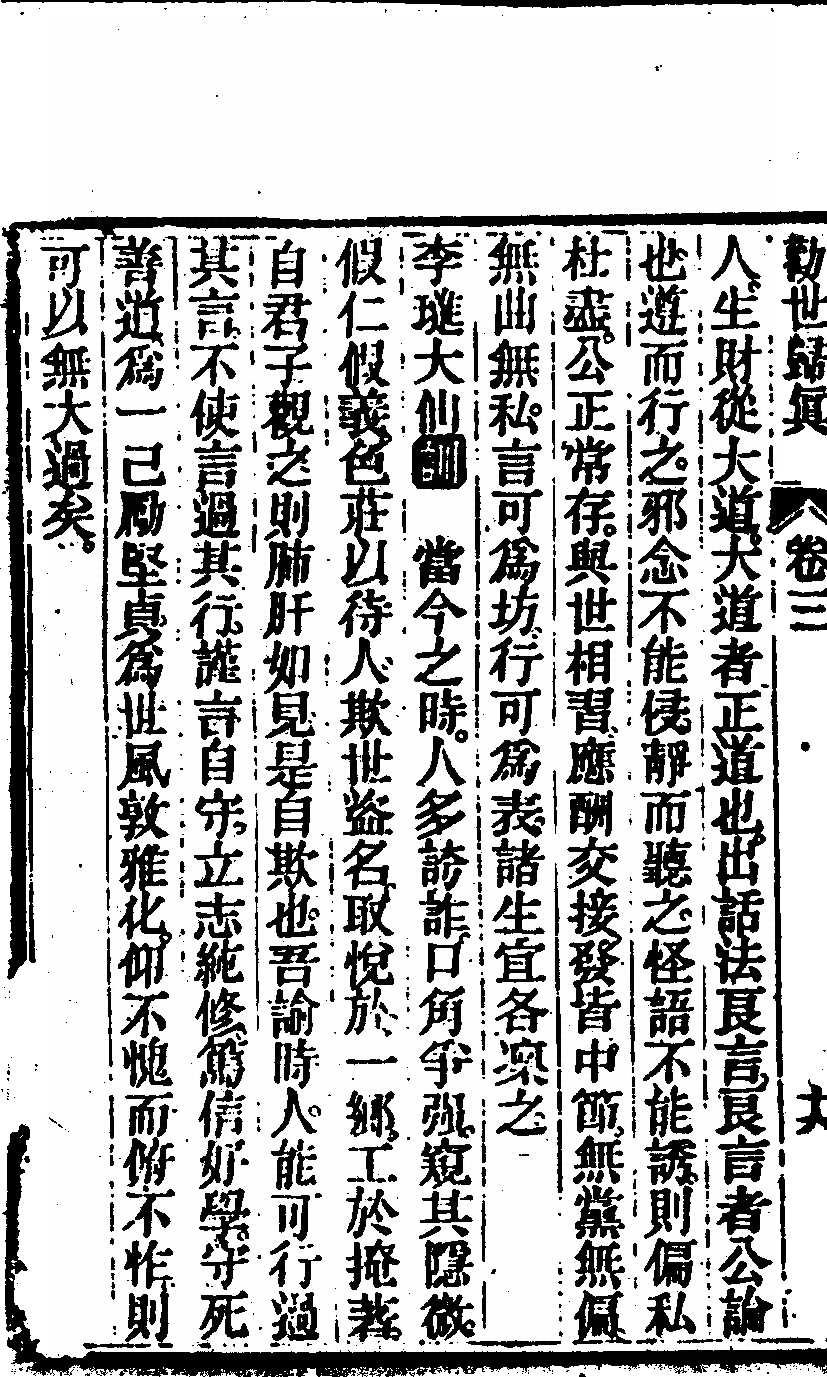 勸世歸眞　卷三
人生財從大道大道者正道也出話法良言良言者公論
也遵而行之邪念不能侵靜而聽之怪語不能誘則偏私
杜盡公正常存與世相習應酬交接發皆中節無黨無偏
無曲無私言可爲坊行可爲表諸生宜各凜之
李璡大仙訓　當今之時人多誇詐口角爭強窺其隱微
假仁假義色莊以待人欺世盜名取悅於一鄉工於掩著
自君子觀之則肺肝如見是自欺也吾諭時人能可行過
其言不使言過其行謹言自守立志純修篤信好學守死
善道爲一己勵堅貞爲世風敦雅化仰不愧而俯不怍則
可以無大過矣